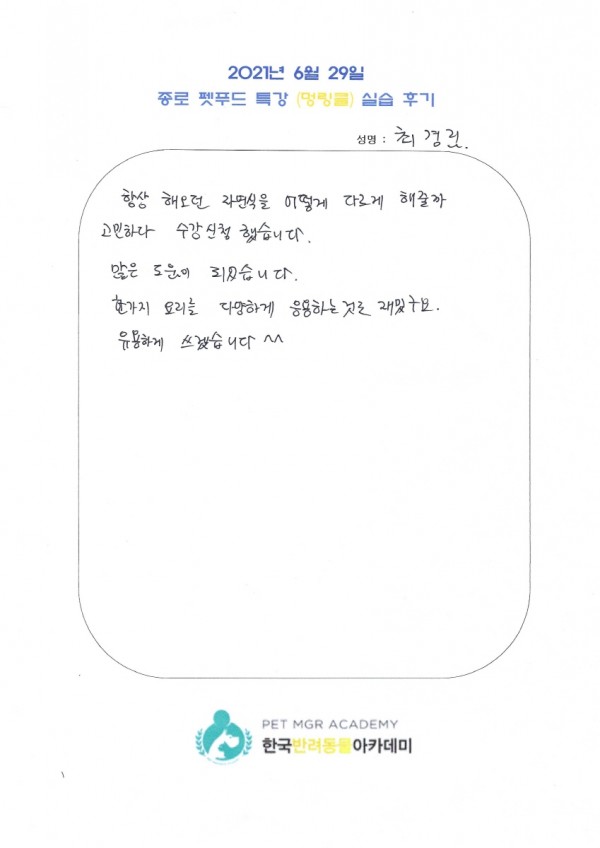 2021년 6월 29일
종로 펫푸드 특강 (멍링클) 실습 후기
성명 : 최경
항상 해오던 자연식을 어떻게 다르게 해줄까
고민하다 수강신청 했습니다.
많은 도움이 되었습니다.
한가지 요리를 다양하게 응용하는것도 재밌구요.
유용하게 쓰겠습니다 ^^
PET MGR ACADEMY
한국반려동물아카데미